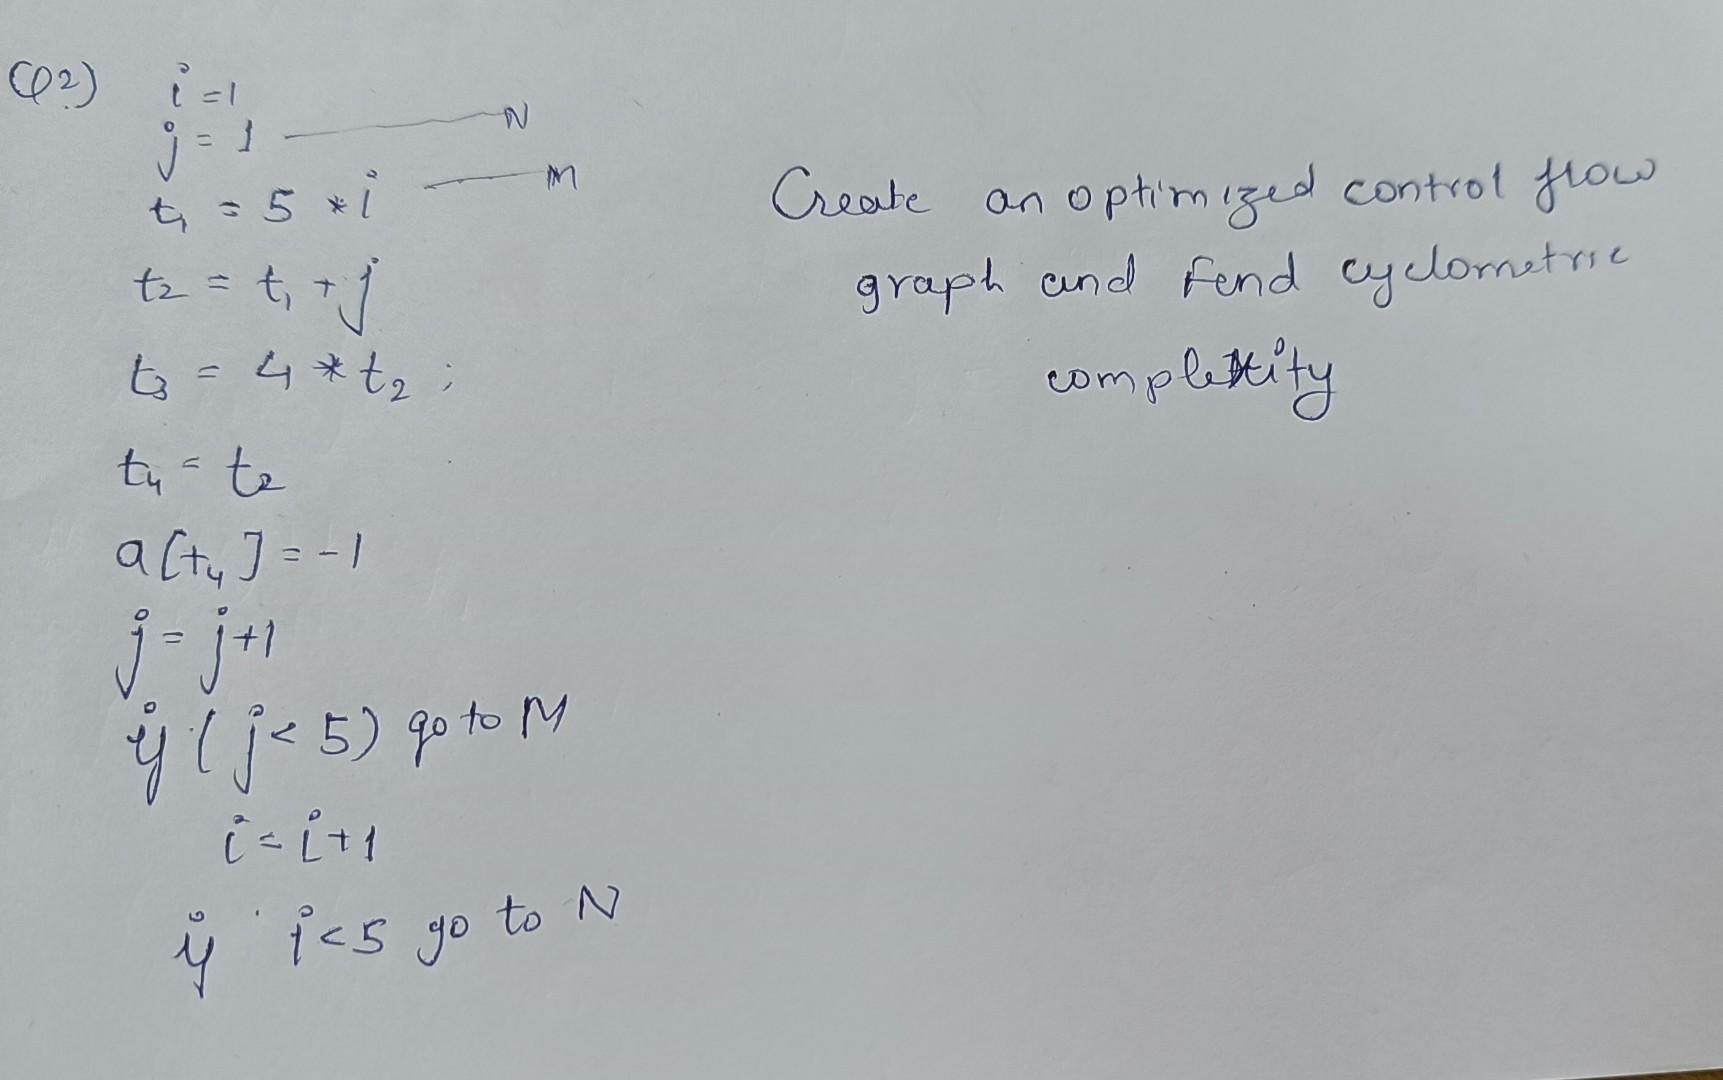 Q2) i = 1
j = 1 N
t₁ = 5 * i M
t₂ = t₁ + j
t₃ = 4 * t₂ ;
t₄ = t₂
a[t₄] = -1
j = j+1
if (j < 5) go to M
i = i+1
if i < 5 go to N
Create an optimized control flow
graph and fend cyclometric
complexity